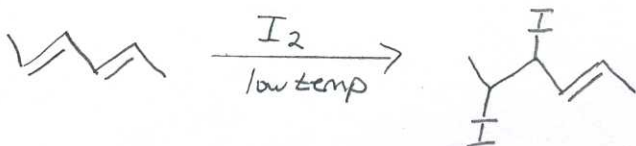 I
I2
low temp
I